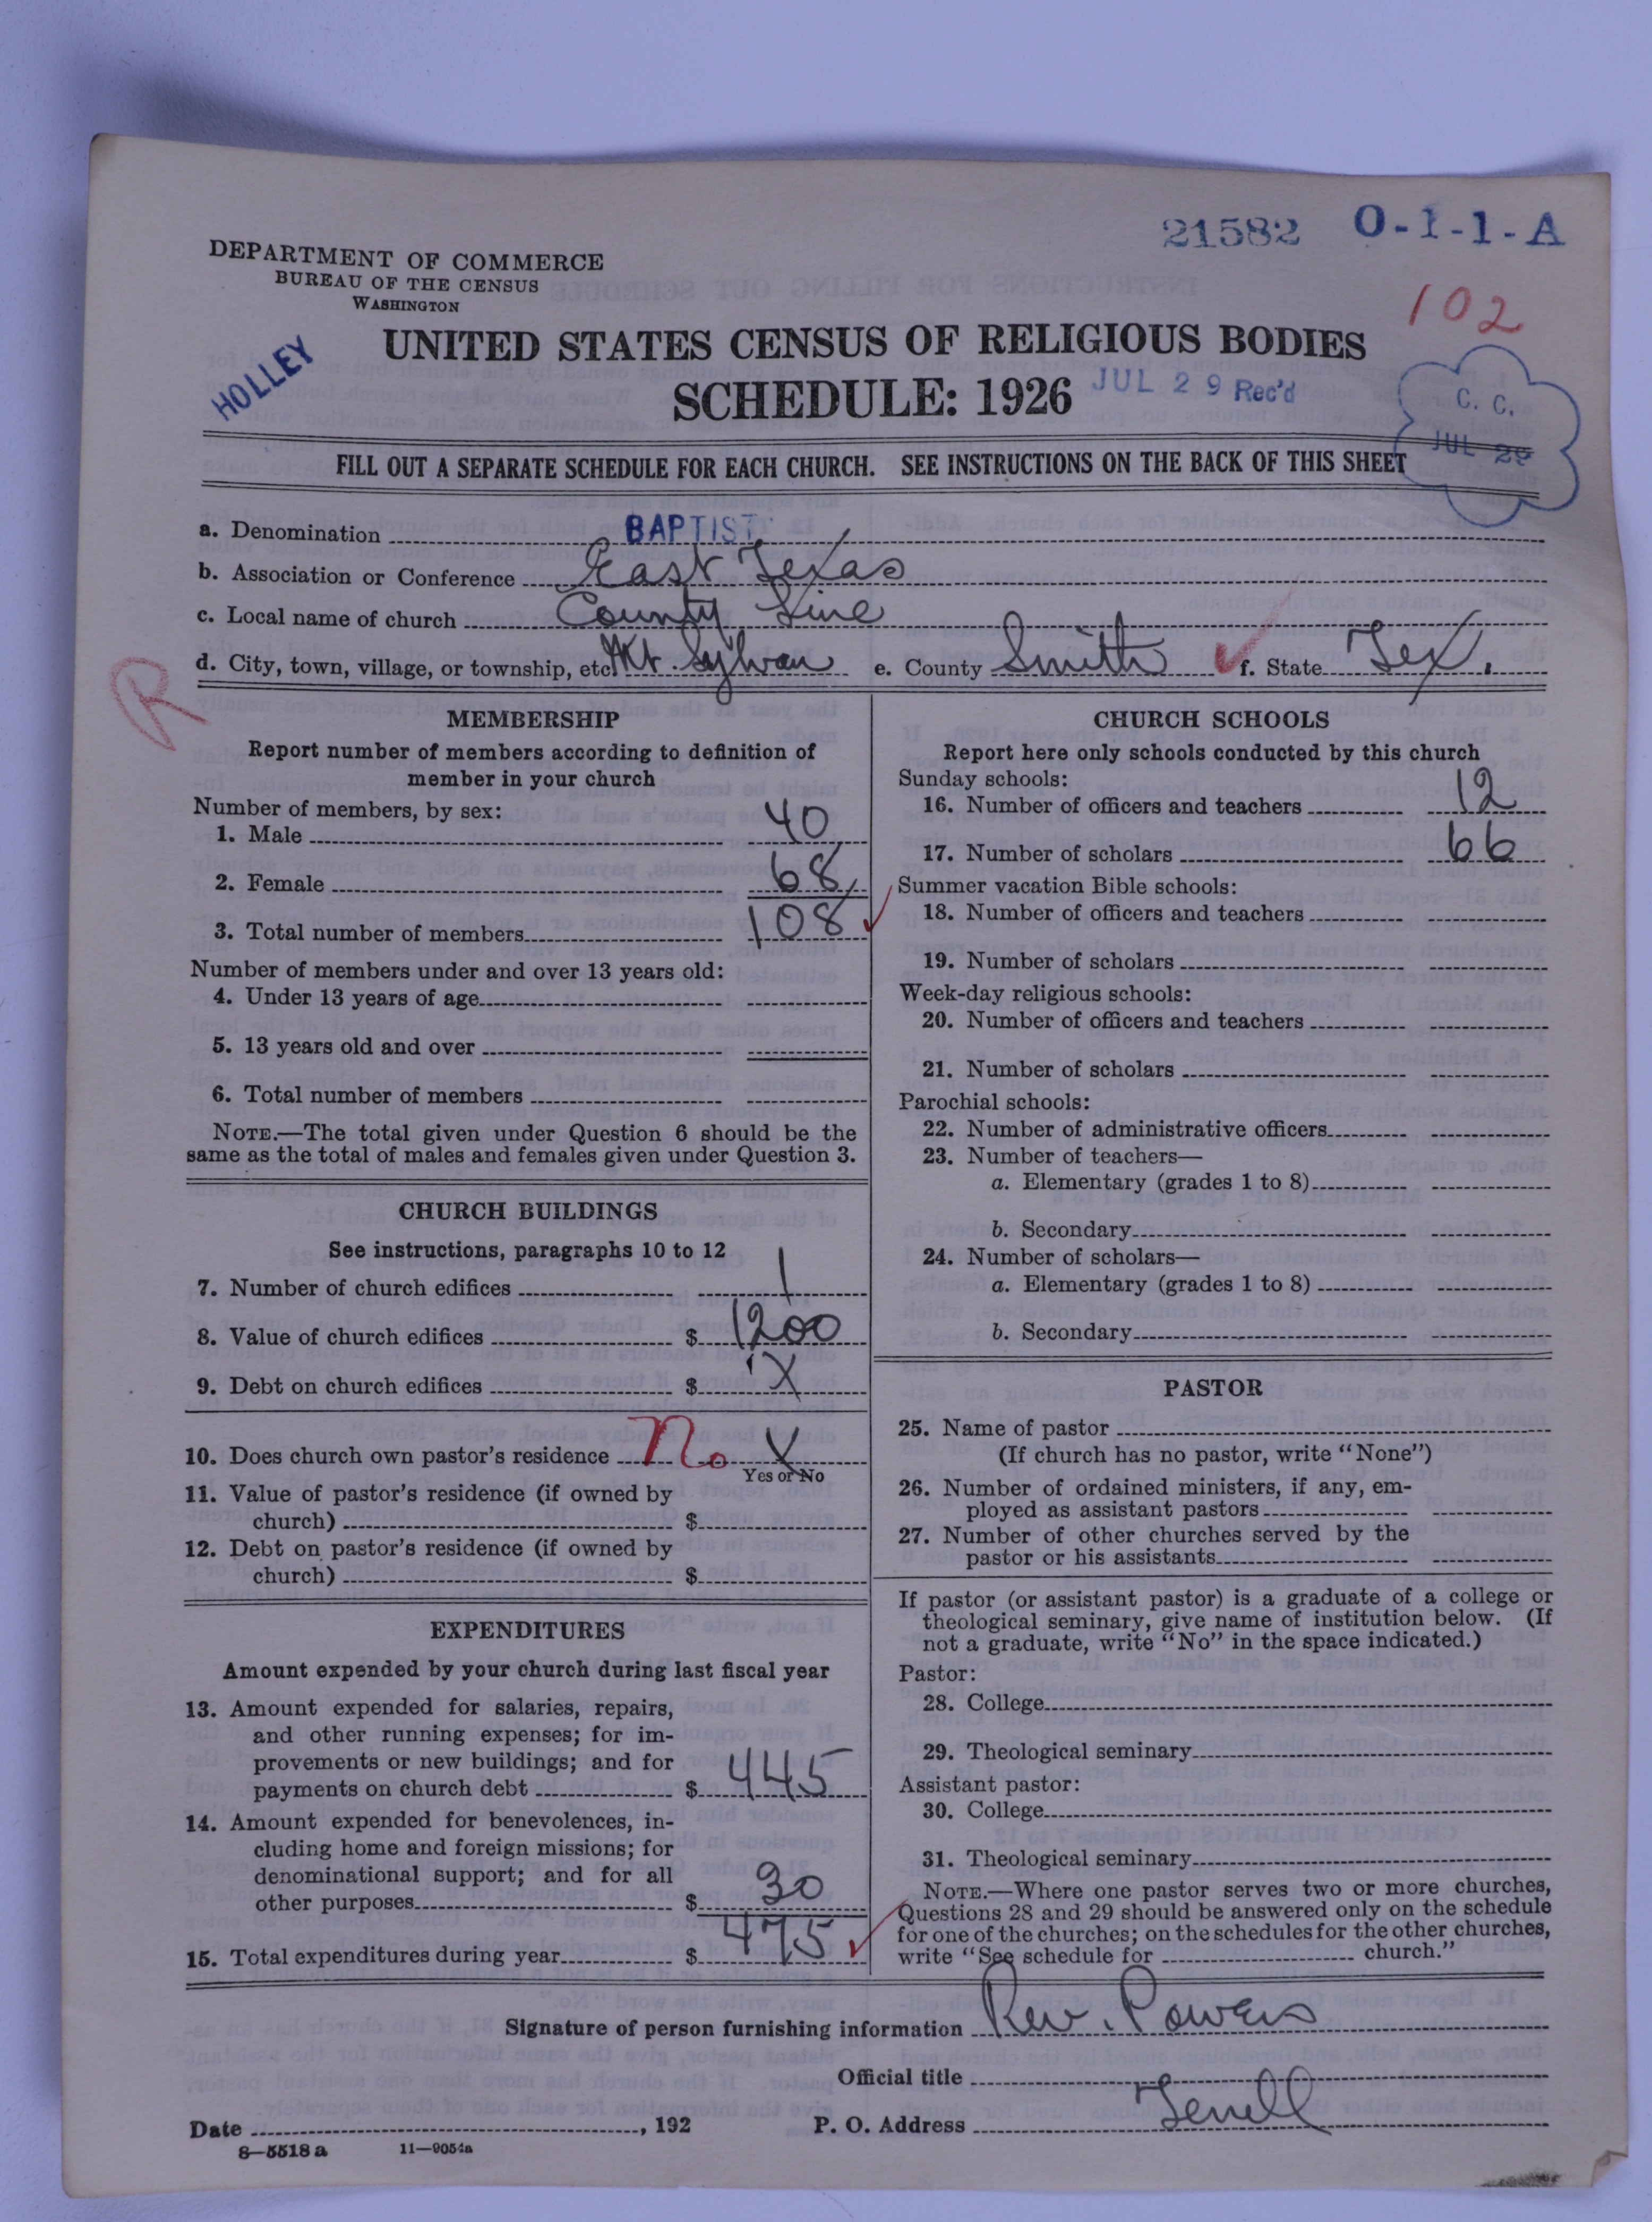 21582 O-1-1-A
DEPARTMENT OF COMMERCE
BUREAU OF THE CENSUS
WASHINGTON
102
HOLLEY
UNITED STATES CENSUS OF RELIGIOUS BODIES
SCHEDULE: 1926
JUL 29 Rec'd
C. C.
JUL 29
FILL OUT A SEPARATE SCHEDULE FOR EACH CHURCH. SEE INSTRUCTIONS ON THE BACK OF THIS SHEET
a. Denomination BAPTIST
b. Association or Conference East Texas
c. Local name of church County Line
d. City, town, village, or township, etc. Mt. Sylvan e. County Smith f. State Tex.
R
MEMBERSHIP
Report number of members according to definition of
member in your church
Number of members, by sex:
1. Male 40
2. Female 68
3. Total number of members 108
Number of members under and over 13 years old:
4. Under 13 years of age
5. 13 years old and over
6. Total number of members
NOTE.—The total given under Question 6 should be the
same as the total of males and females given under Question 3.
CHURCH BUILDINGS
See instructions, paragraphs 10 to 12
7. Number of church edifices 1
8. Value of church edifices $ 1200
9. Debt on church edifices $ X
10. Does church own pastor's residence No X
Yes or No
11. Value of pastor's residence (if owned by
church) $
12. Debt on pastor's residence (if owned by
church) $
EXPENDITURES
Amount expended by your church during last fiscal year
13. Amount expended for salaries, repairs,
and other running expenses; for im-
provements or new buildings; and for
payments on church debt $ 445
14. Amount expended for benevolences, in-
cluding home and foreign missions; for
denominational support; and for all
other purposes $ 30
15. Total expenditures during year $ 475
CHURCH SCHOOLS
Report here only schools conducted by this church
Sunday schools:
16. Number of officers and teachers 12
17. Number of scholars 66
Summer vacation Bible schools:
18. Number of officers and teachers
19. Number of scholars
Week-day religious schools:
20. Number of officers and teachers
21. Number of scholars
Parochial schools:
22. Number of administrative officers
23. Number of teachers—
a. Elementary (grades 1 to 8)
b. Secondary
24. Number of scholars—
a. Elementary (grades 1 to 8)
b. Secondary
PASTOR
25. Name of pastor
(If church has no pastor, write "None")
26. Number of ordained ministers, if any, em-
ployed as assistant pastors
27. Number of other churches served by the
pastor or his assistants
If pastor (or assistant pastor) is a graduate of a college or
theological seminary, give name of institution below. (If
not a graduate, write "No" in the space indicated.)
Pastor:
28. College
29. Theological seminary
Assistant pastor:
30. College
31. Theological seminary
NOTE.—Where one pastor serves two or more churches,
Questions 28 and 29 should be answered only on the schedule
for one of the churches; on the schedules for the other churches,
write "See schedule for church."
Signature of person furnishing information Rev. Powers
Official title
Date , 192 P. O. Address Terrell
8—5518a 11—9054a